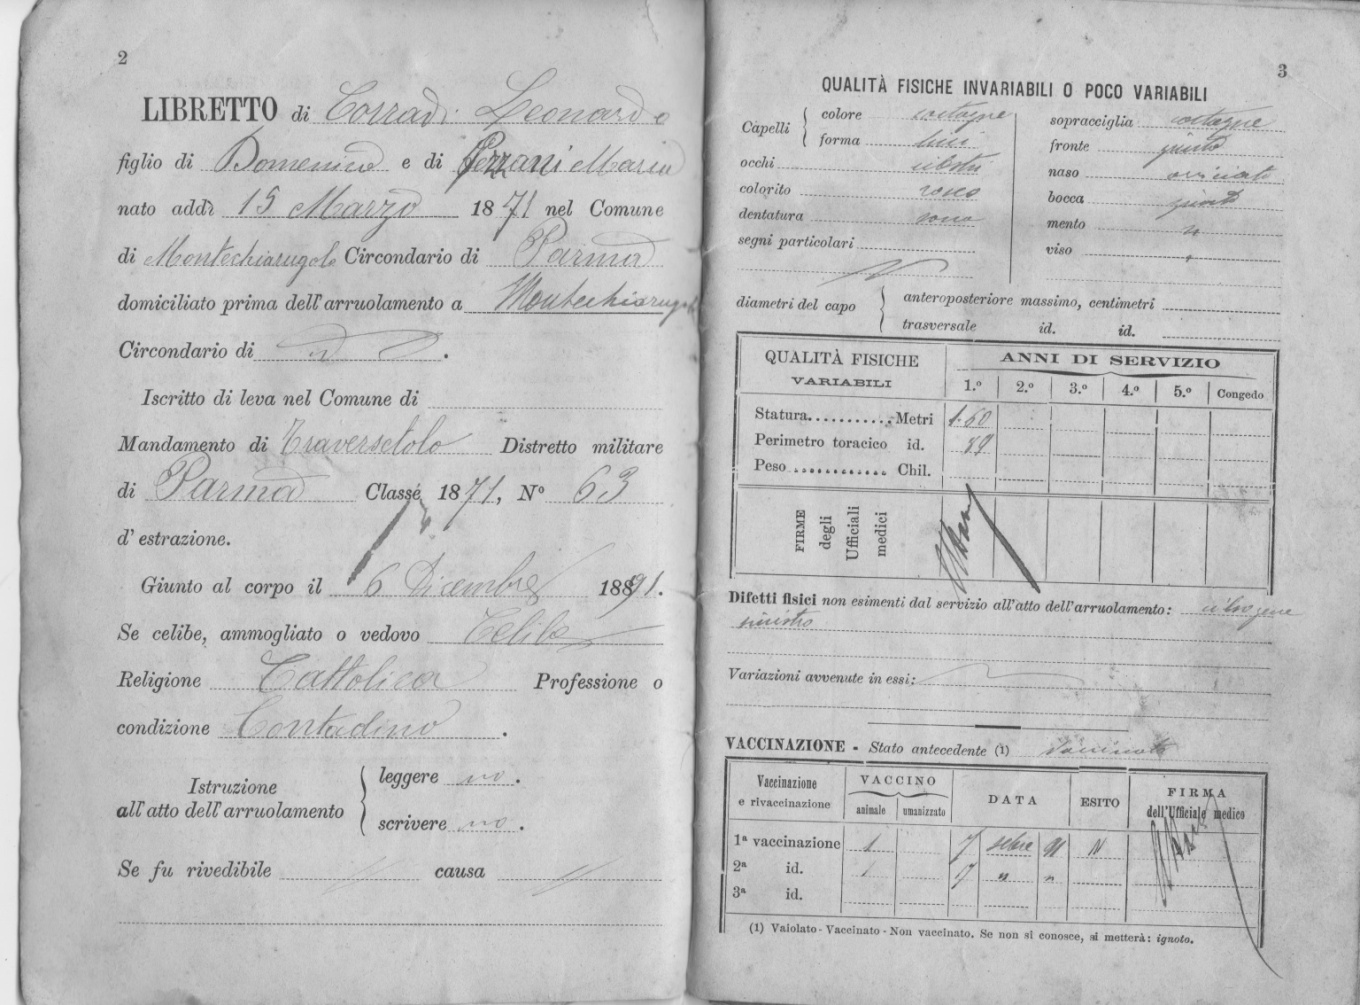 2
LIBRETTO di Corradi Leonardo
figlio di Domenico e di Pezzani Maria
nato addì 15 Marzo 1871 nel Comune
di Montechiarugolo Circondario di Parma
domiciliato prima dell'arruolamento a Montechiarugolo
Circondario di id.
Iscritto di leva nel Comune di
Mandamento di Traversetolo Distretto militare
di Parma Classe 1871, N° 63
d'estrazione.
Giunto al corpo il 6 Dicembre 1891.
Se celibe, ammogliato o vedovo Celibe
Religione Cattolica Professione o
condizione Contadino.
Istruzione all'atto dell'arruolamento
leggere no.
scrivere no.
Se fu rivedibile // causa //
3
QUALITÀ FISICHE INVARIABILI O POCO VARIABILI
Capelli
colore castagne
forma lisci
occhi
colorito roseo
dentatura sana
segni particolari
sopracciglia castagne
fronte giusta
naso
bocca giusta
mento "
viso "
diametri del capo
anteroposteriore massimo, centimetri
trasversale id. id.
QUALITÀ FISICHE VARIABILI
ANNI DI SERVIZIO
1.° 2.° 3.° 4.° 5.° Congedo
Statura........... Metri 1.60
Perimetro toracico id. 89
Peso ............ Chil.
FIRME degli Ufficiali medici
Difetti fisici non esimenti dal servizio all'atto dell'arruolamento:
sinistro
Variazioni avvenute in essi:
VACCINAZIONE - Stato antecedente (1) Vaccinato
Vaccinazione e rivaccinazione
VACCINO
animale umanizzato
DATA
ESITO
FIRMA dell'Ufficiale medico
1ª vaccinazione 1 7 91 N
2ª id. 1 7 " "
3ª id.
(1) Vaiolato - Vaccinato - Non vaccinato. Se non si conosce, si metterà: ignoto.